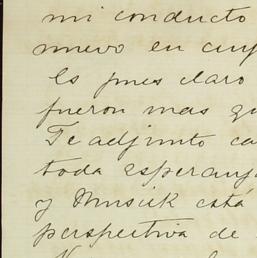 mi conducto
nuevo en cuy
Es pues claro
fueron mas qu
Te adjunto ca
toda esperanz
y Musick está
perspectiva de